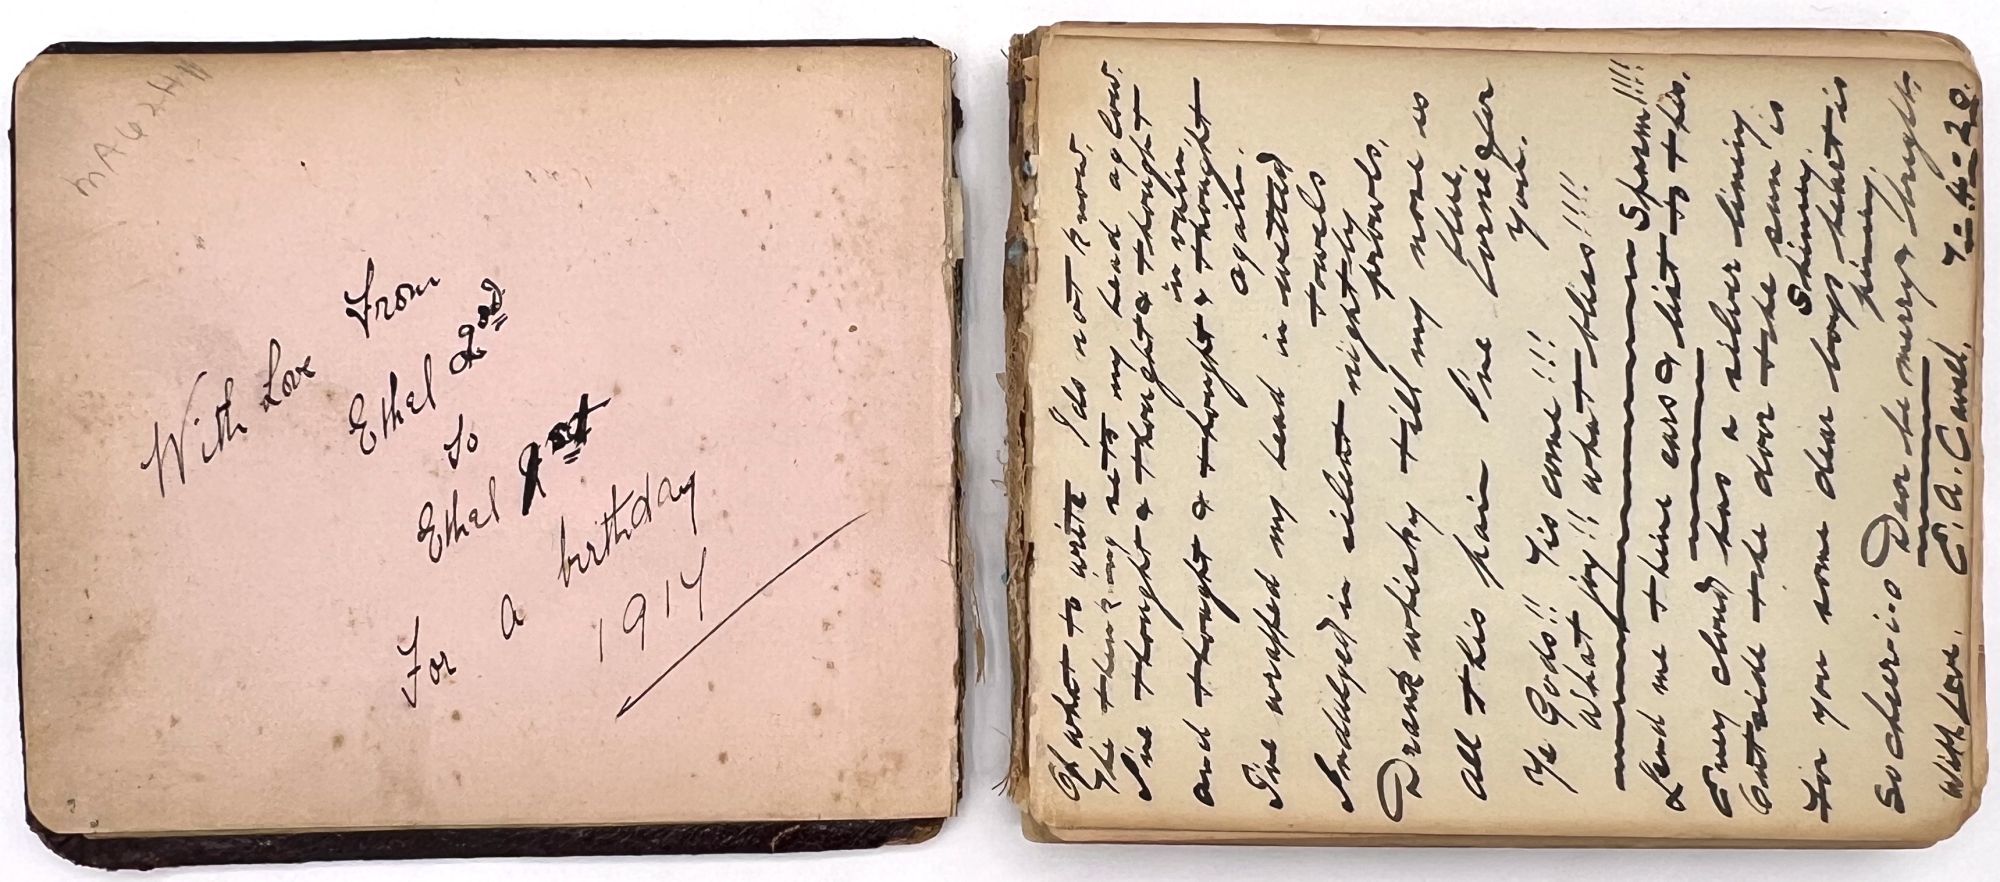 With Love From
Ethel 2nd
to
Ethel 1st
For a birthday
1914
Of what to write I do not know.
The thinking sets my head aglow.
I've thought & thought & thought & thought
in vain,
and thought & thought & thought
again.
I've wrapped my head in wetted
towels
Indulged in silent nightly
prowls.
Drank whisky till my nose is
blue.
All this pain I've borne for
you.
Ye Gods!! 'Tis come!!!
What joy!! what bliss!!!!
Spasm!!!
Lend me thine ears & list to this.
Every cloud has a silver lining
Outside the door the sun is
Shining.
For you some dear boys heart is
pining.
So cheer-i-o Dear be merry & bright.
With Love. E. A. Cavell. 7-4-20.